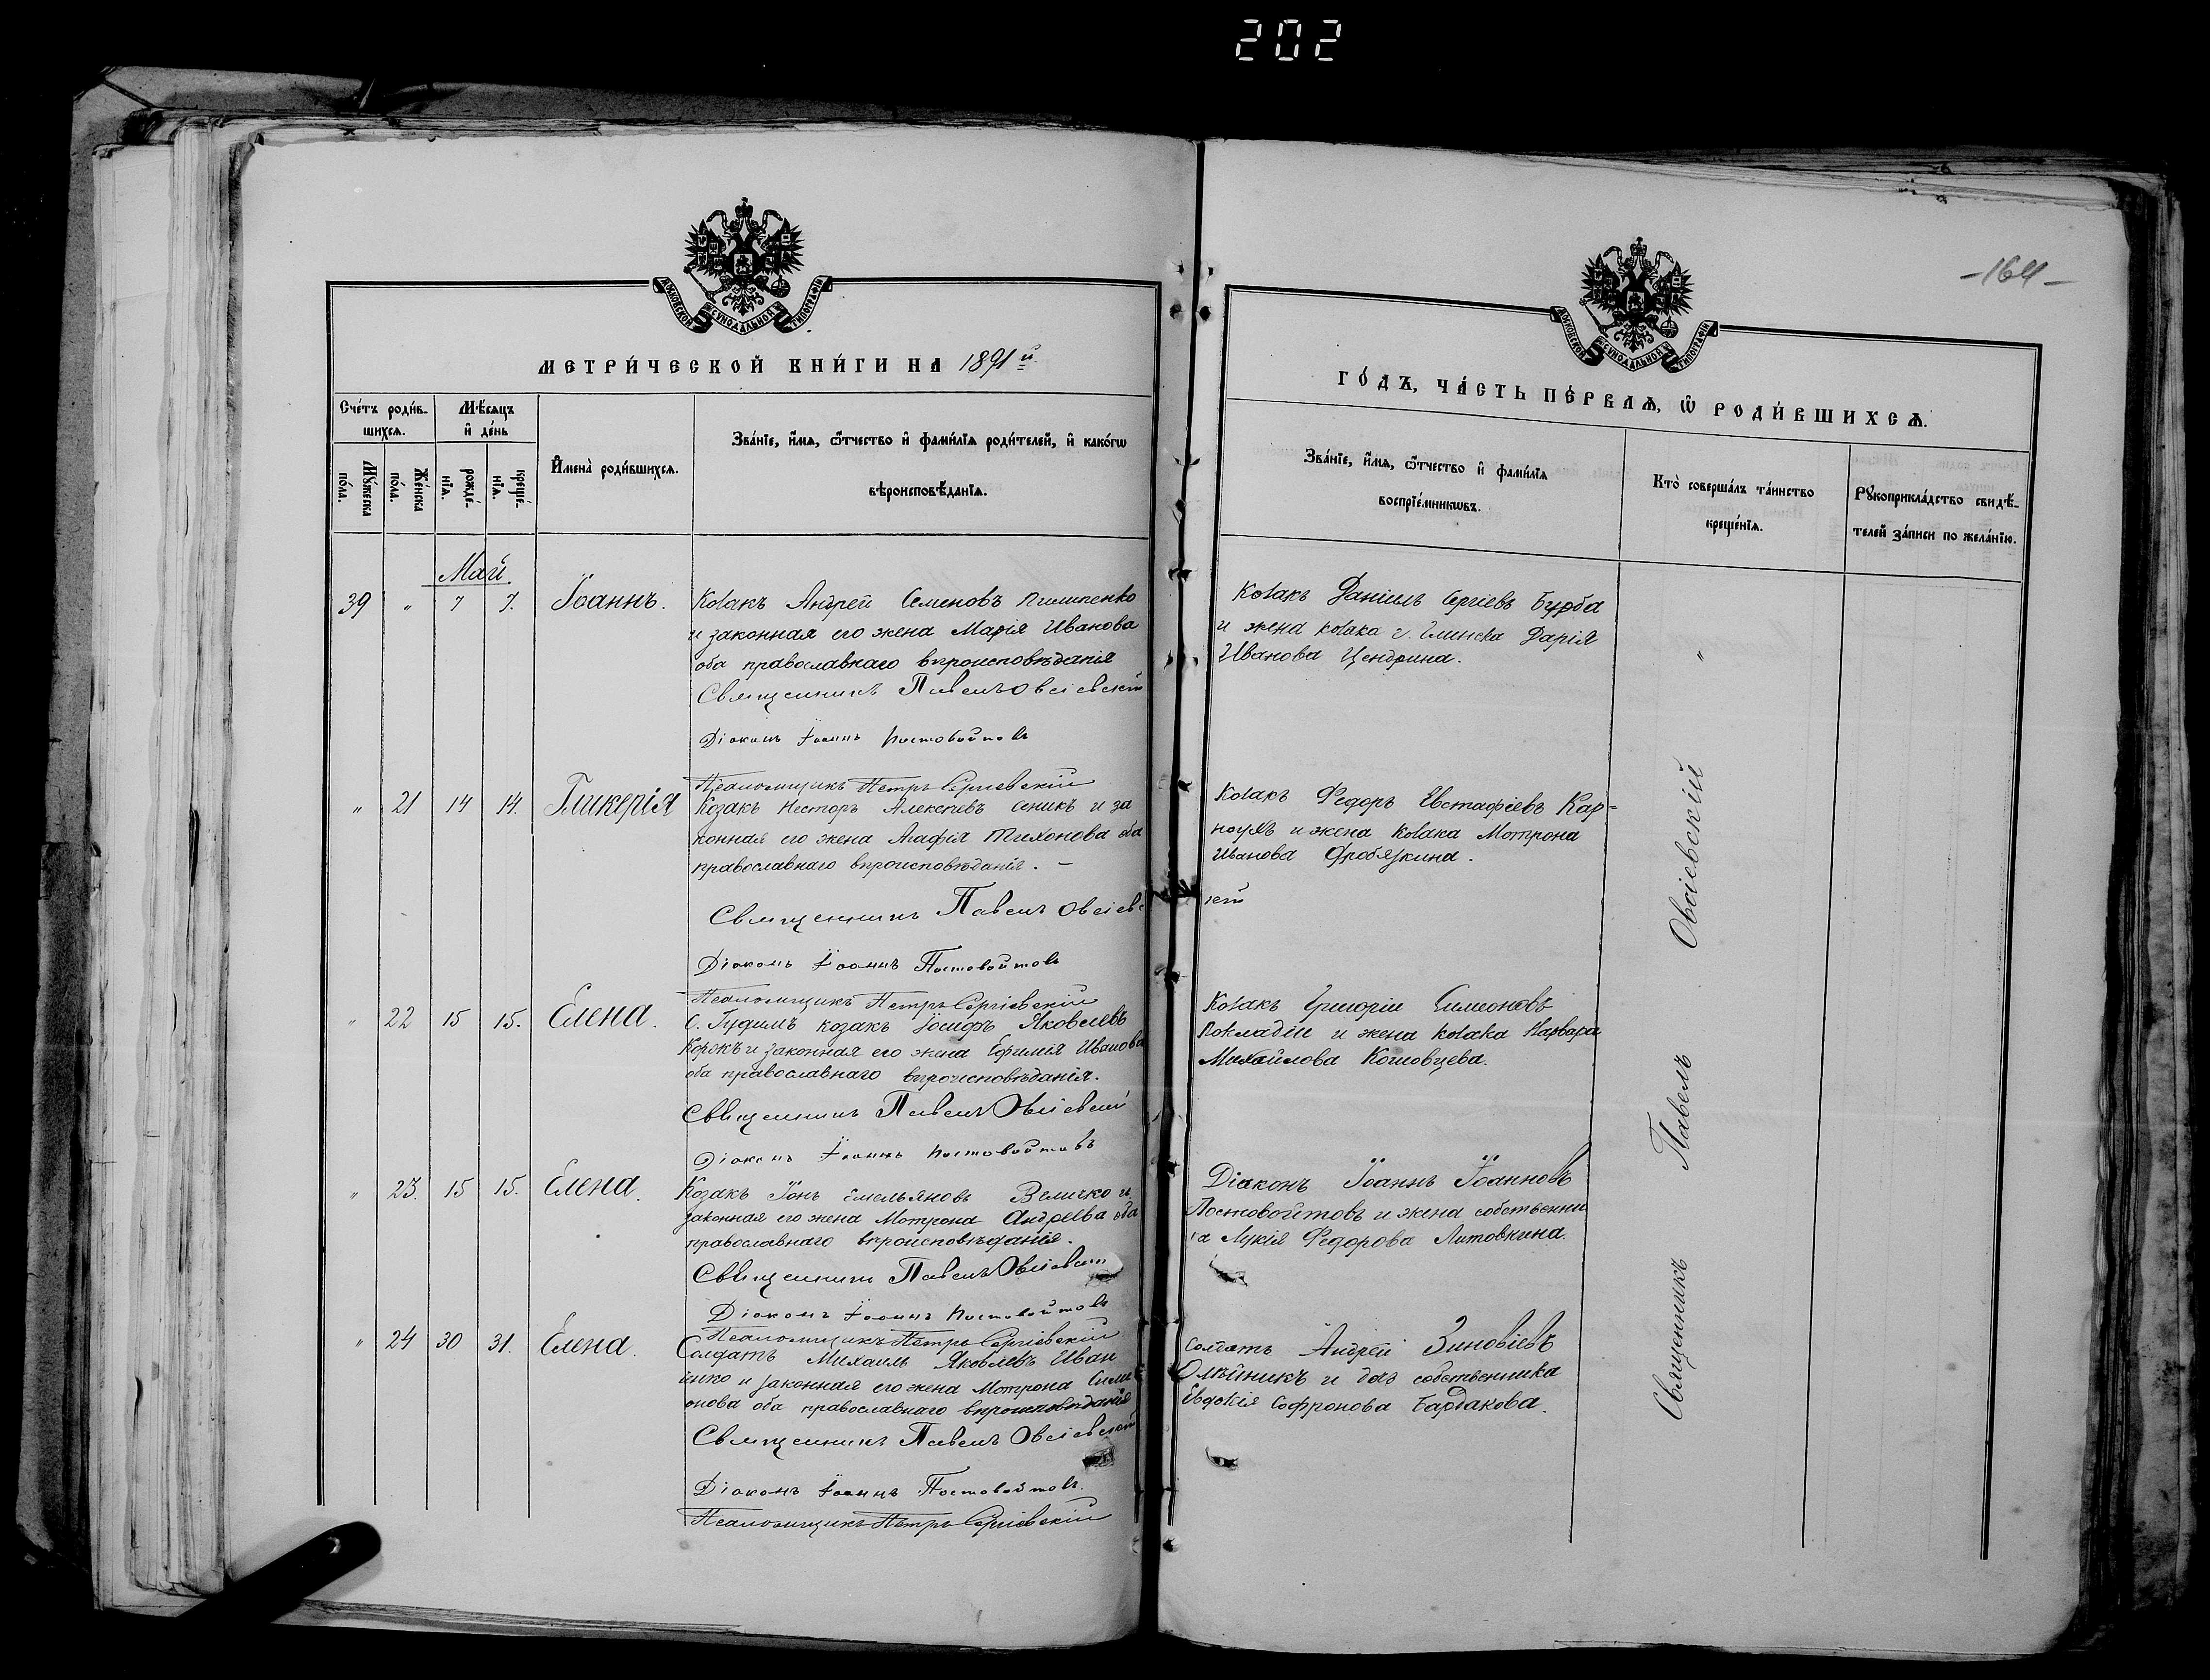 202
МОСКОВСКОЙ СѴНОДАЛЬНОЙ ТИПОГРАФІИ
МЕТРИ́ЧЕСКОЙ КНИ́ГИ НА 1891й
Сче́тъ роди́в-
шихсѧ.
Мѣ́сѧцъ
и҆ де́нь
Мꙋ́жеска
по́ла.
Же́нска
по́ла.
рожде́-
нїѧ.
креще́-
нїѧ.
И҆мена̀ роди́вшихсѧ.
Зва́нїе, и҆́мѧ, ѻ҆́тчество и҆ фами́лїѧ роди́телей, и҆ како́гѡ
вѣроисповѣ́данїѧ.
Май
39 " 7 7. Іоаннъ.
Козакъ Андрей Семеновъ
и законная его жена Марія Иванова
оба православнаго вѣроисповѣданія
Священникъ Павелъ Овсіевскій
Діаконъ Іоаннъ Постовойтовъ
Псаломщикъ Петръ Сергіевскій
" 21 14 14. Гликерія
Козакъ Несторъ Алексѣевъ Сеникъ и за
конная его жена Агафія Тихонова оба
православнаго вѣроисповѣданія. –
Священникъ Павелъ Овсіевс
Діаконъ Іоаннъ Постовойтовъ
Псаломщикъ Петръ Сергіевскій
" 22 15 15. Елена.
С. Гудимъ козакъ Іосифъ Яковлевъ
Коржъ и законная его жена Ефимія Иванова
оба православнаго вѣроисповѣданія.
Священникъ Павелъ Овсіевскій
Діаконъ Іоаннъ Постовойтовъ
" 23. 15 15. Елена.
Козакъ Іонъ Емельяновъ Величко и
законная его жена Мотрона Андреева оба
православнаго вѣроисповѣданія.
Священникъ Павелъ Овсіевскій
Діаконъ Іоаннъ Постовойтовъ
Псаломщикъ Петръ Сергіевскій
" 24 30 31. Елена.
Солдатъ Михаилъ Яковлевъ Иван
енко и законная его жена Мотрона Симе
онова оба православнаго вѣроисповѣданія
Священникъ Павелъ Овсіевскій
Діаконъ Іоаннъ Постовойтовъ.
Псаломщикъ Петръ Сергіевскій
-164-
МОСКОВСКОЙ СѴНОДАЛЬНОЙ ТИПОГРАФІИ
ГО́ДЪ, ЧА́СТЬ ПЕ́РВАѦ, Ѡ҆ РОДИ́ВШИХСѦ.
Зва́нїе, и҆́мѧ, ѻ҆́тчество и҆ фами́лїѧ
воспрїе́мникѡвъ.
Кто̀ соверша́лъ та́инство
креще́нїѧ.
Рꙋкоприкла́дство свидѣ́-
телей за́писи по жела́нїю.
Козакъ Даніилъ Сергіевъ Бурба
и жена козака г. Глинска Дарія
Иванова Цендрина.
"
Козакъ Федоръ Евстафіевъ Кар=
наухъ и жена козака Мотрона
Иванова Дробязкина.
кій
Козакъ Григорій Симеоновъ
Покладій и жена козака Варвара
Михайлова Кошовцева.
Діаконъ Іоаннъ Іоанновъ
Постовойтовъ и жена собственни
ка Лукія Федорова Литовкина.
Солдатъ Андрей Зиновіевъ
Олѣйникъ и дочь собственника
Евдокія Софронова Бардакова.
Священникъ Павелъ Овсіевскій